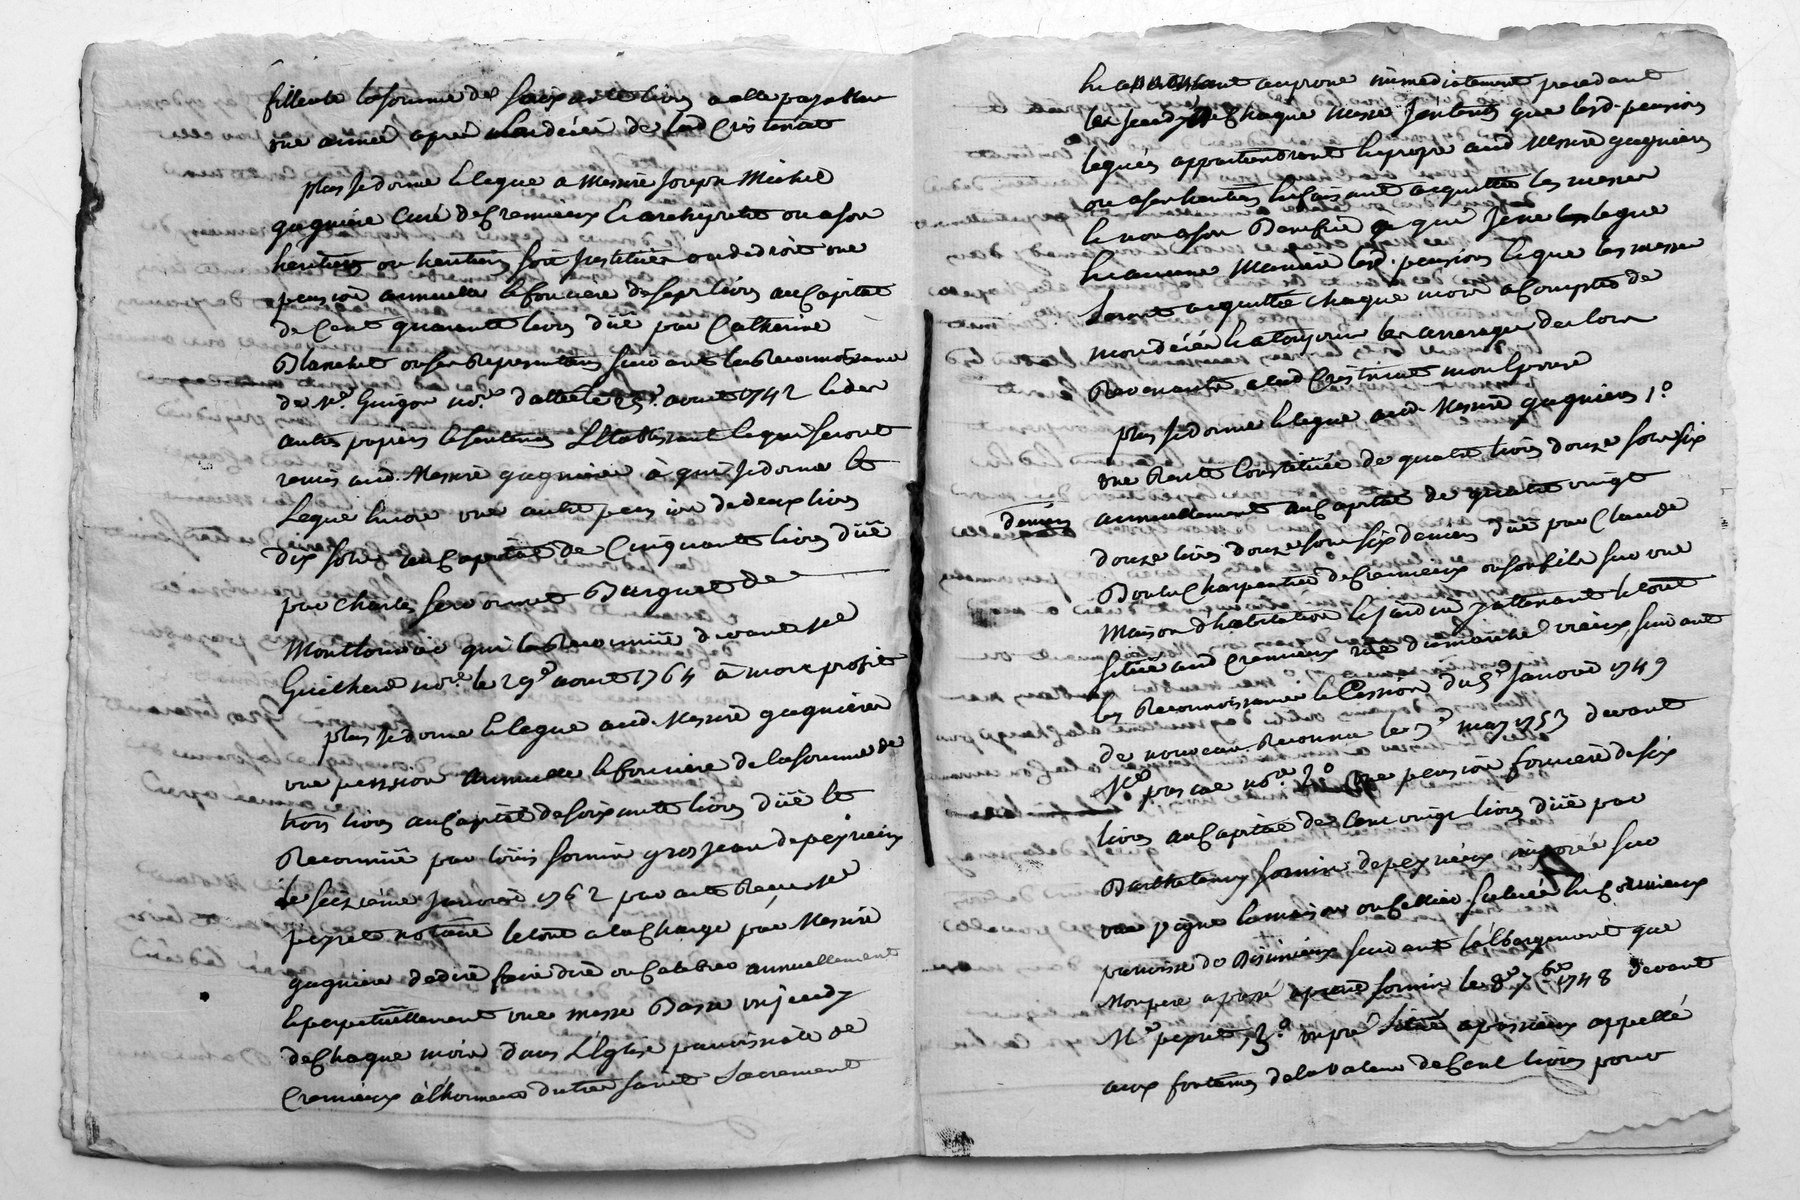 filleule la somme de soixante livres a elle payable
une année après mon décès de lad Cristinat
plus je donne & legue a Messire Joseph Michel
gagniere Curé de Cremieux & archiprêtre ou a son
heritiers ou heritiers soit institués ou de droit une
pension annuelle & fonciere de sept livres au Capital
de Cent quarante livres düe par Catherine
Blanchet ou ses Representans suivant la Reconnoissance
de Me. Guigou nore. dattée le 25e. avril 1742 & des
autres papiers & sentences L'Etablissant & qui seront
remis aud. Messire gagniere à qui je donne &
Legue encore une autre pension de deux livres
dix sols au Capital de Cinquante livres düe
par Charles Servonnet Burquet de
qui l'a Reconnüe devant Me
Guilherd nore. le 29e aoust 1764 à mon profit
plus je donne & legue aud. Messire gagnieres
une pension annuelle & fonciere de la somme de
trois livres au Capital de soixante livres düe &
Reconnüe par loüis sornin gros jean de peyrieux
le seizième Janvier 1762 par acte Receu Me
peyret notaire le tout a la Charge par Messire
gagniere de dire faire dire ou Celebrer annuellement
& perpetuellement une messe Basse un jeudy
de Chaque mois dans L'Eglise parroissiale de
Cremieux à l'honneur du très saint Sacrement
au prone immediatement precedant
les jeudy de Chaque messe J'entends que lesd. pensions
leguées appartiendront en propre aud Messire gagnieres
ou a ses heritiers en faisant acquitter les messes
& non a son Benefice à qui Je ne legue
en aucune Maniere lesd. pensions & que les messes
Seront acquittées chaque mois a Compter de
mon décès & a toujours les arrerages des lors
Revenants a lad Cristinat mon Epouse
plus je donne & legue aud. Messire gagnieres 1°
une Rente Constituée de quatre livres douze sols six
deniers annuellement au Capital de quatre vingt
douze livres douze sols six deniers düe par Claude
Charpentier de Cremieux ou son fils sur une
Maison d'habitation & jardin y attenant le tout
située aud Cremieux rüe du marché vieux suivant
les Reconnoissance & Cession du 5e Janvier 1749
de nouveau Reconnue le 7e may 1753 devant
Me pascal nore. 2° une pension fonciere de six
livres au Capital de Cent vingt livres düe par
Barthelemy sornin de peyrieux imposée sur
une vigne la maison ou Cellier située en Cormieux
parroisse de suivant l'albergement que
Mon pere a passé a pierre sornin le 8e 7bre 1748 devant
Me peyret, 3° un pré situé a appellé
aux fontaines de la valeur de Cent livres pour